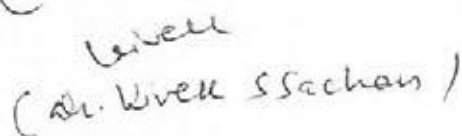 Vivek
(Dr. Vivek SSachan)